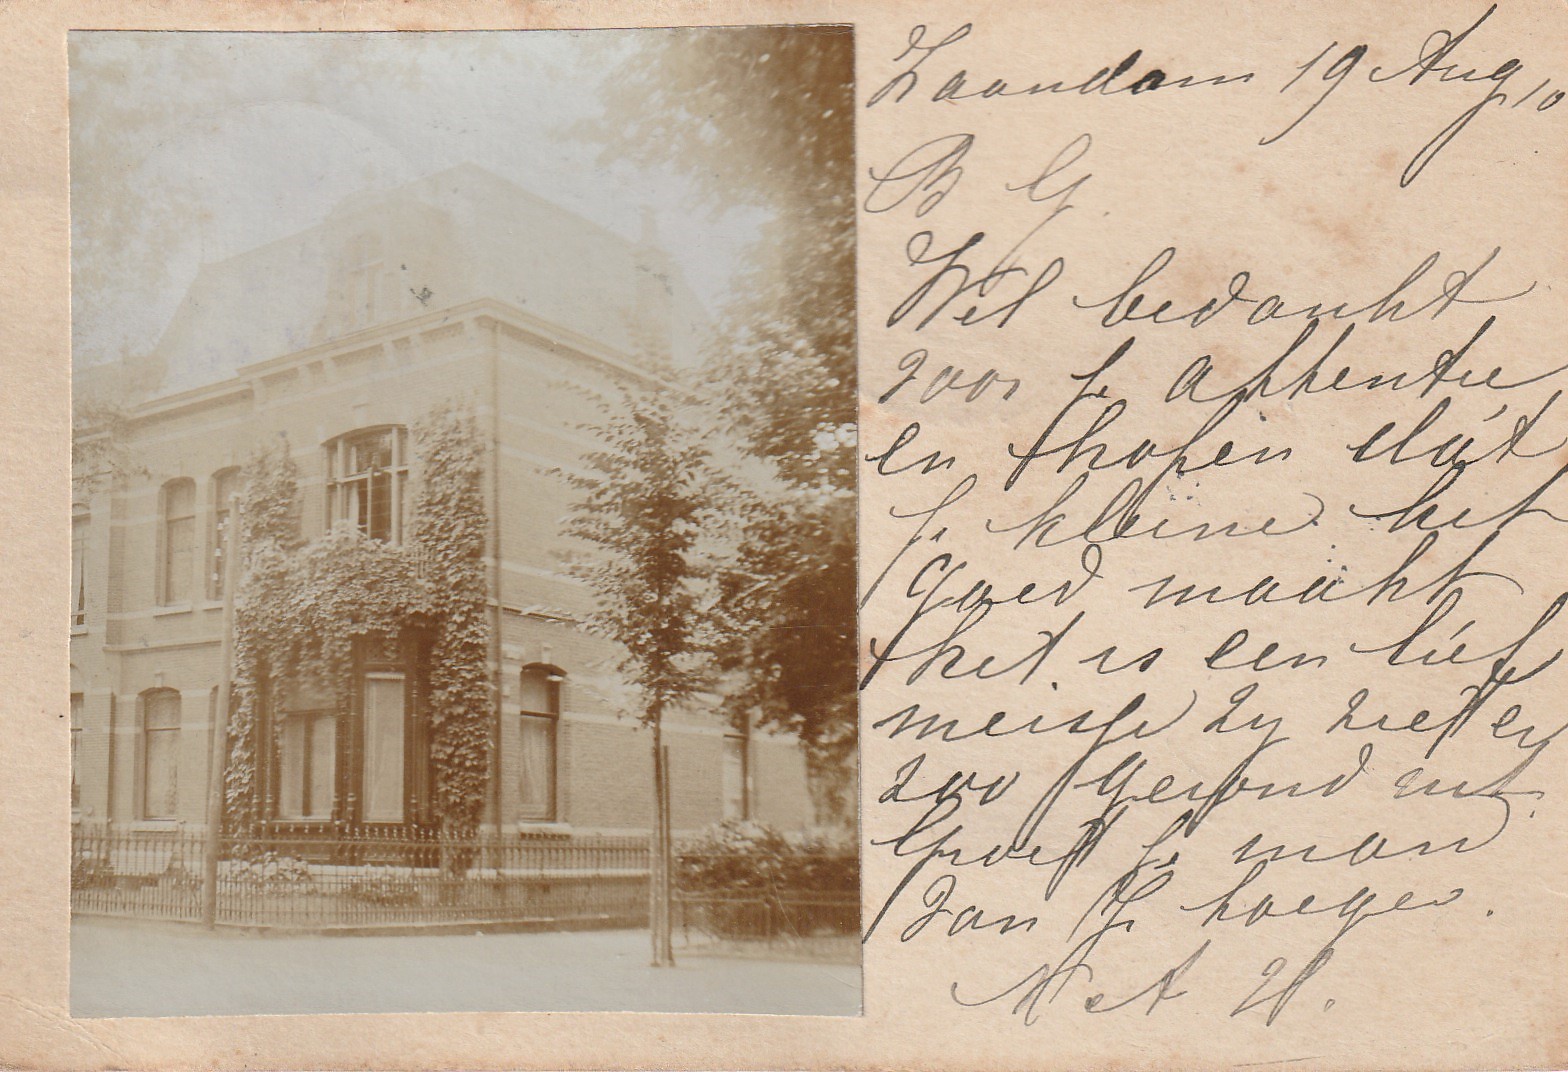 Zaandam 19 Aug 10
B G.
Wel bedankt
voor je attentie
en hopen dat
je kleine het
goed maakt
het is een lief
meisje zy ziet er
zoo gezond uit.
Groet je man
van je
N et A V.